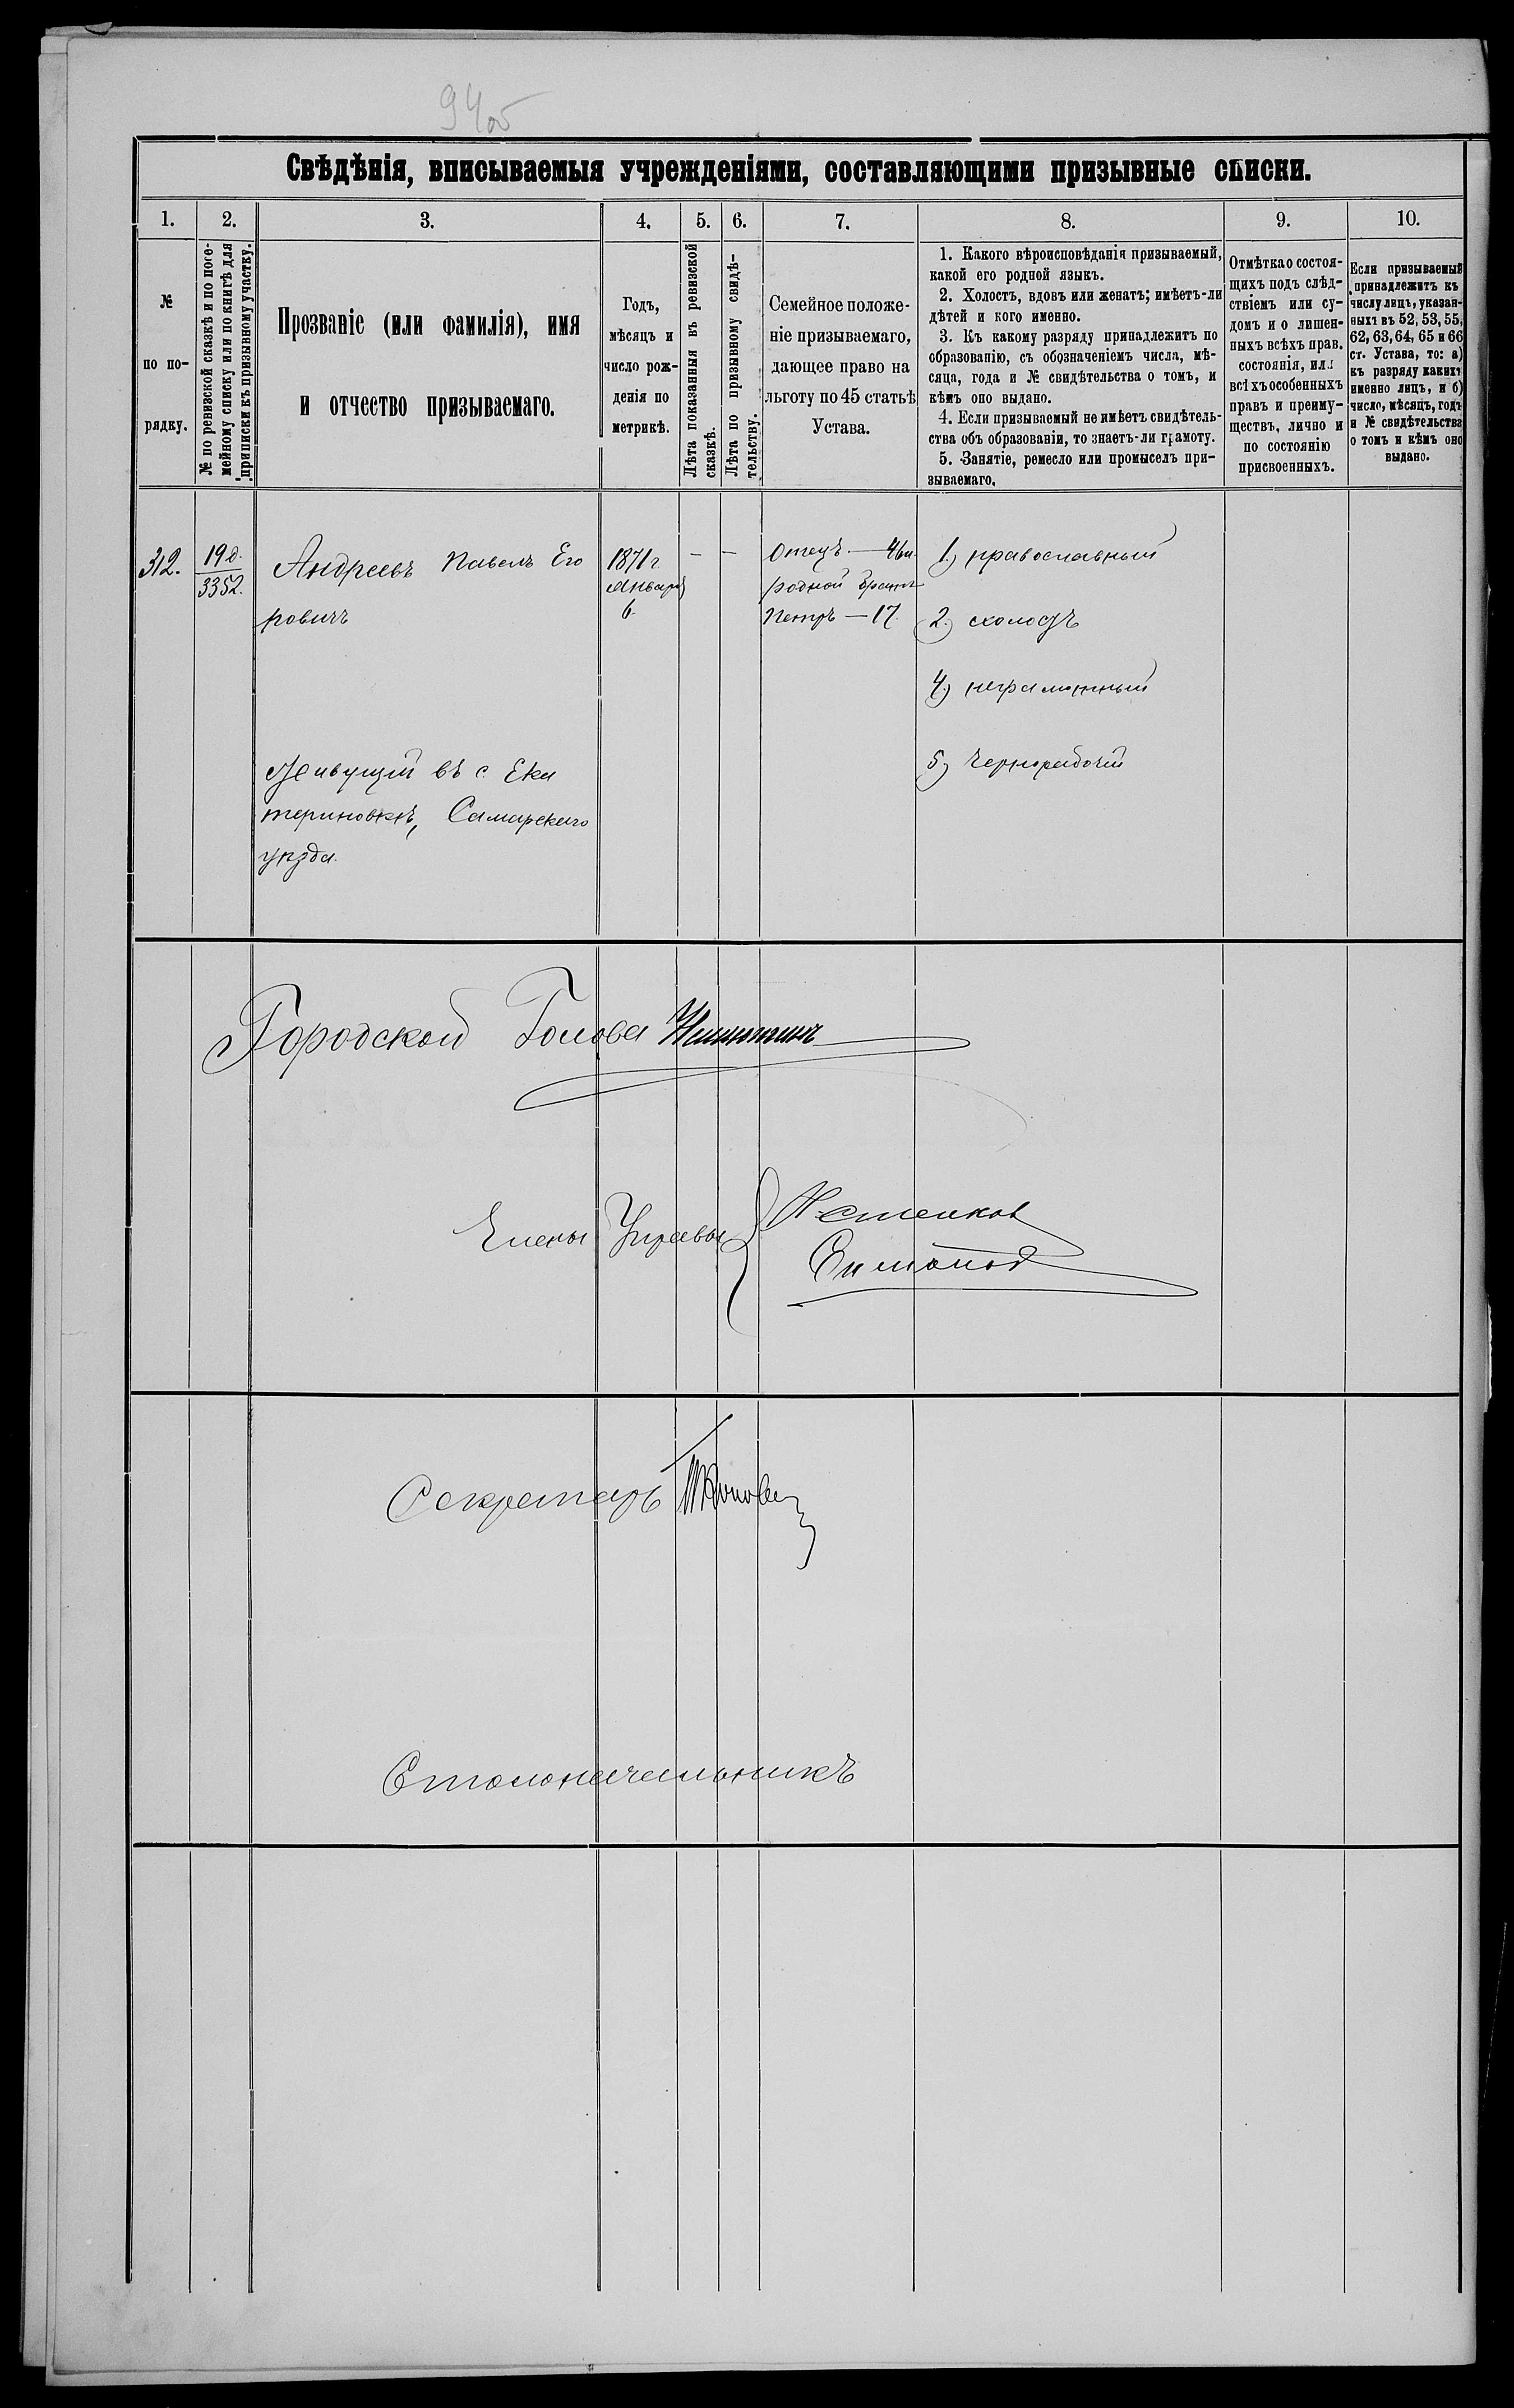 94об
Свѣдѣнія, вписываемыя учрежденіями, составляющими призывные списки.
1. 2. 3. 4. 5. 6. 7. 8. 9. 10.
№
по по-
рядку.
№ по ревизской сказкѣ и по посе-
мейному списку или по книгѣ для
приписки къ призывному участку.
Прозваніе (или фамилія), имя
и отчество призываемаго.
Годъ,
мѣсяцъ и
число рож-
денія по
метрикѣ.
Лѣта показанныя въ ревизской
сказкѣ.
Лѣта по призывному свидѣ-
тельству.
Семейное положе-
ніе призываемаго,
дающее право на
льготу по 45 статьѣ
Устава.
1. Какого вѣроисповѣданія призываемый,
какой его родной языкъ.
2. Холостъ, вдовъ или женатъ; имѣетъ-ли
дѣтей и кого именно.
3. Къ какому разряду принадлежитъ по
образованію, съ обозначеніемъ числа, мѣ-
сяца, года и № свидѣтельства о томъ, и
кѣмъ оно выдано.
4. Если призываемый не имѣетъ свидѣтель-
ства объ образованіи, то знаетъ-ли грамоту.
5. Занятіе, ремесло или промыселъ при-
зываемаго.
Отмѣтка о состоя-
щихъ подъ слѣд-
ствіемъ или су-
домъ и о лишен-
ныхъ всѣхъ прав.
состоянія, или
всѣхъ особенныхъ
правъ и преиму-
ществъ, лично и
по состоянію
присвоенныхъ.
Если призываемый
принадлежитъ къ
числу лицъ, указан-
ныхъ въ 52, 53, 55,
62, 63, 64, 65 и 66
ст. Устава, то: а)
къ разряду какихъ
именно лицъ, и б)
число, мѣсяцъ, годъ
и № свидѣтельства
о томъ и кѣмъ оно
выдано.
312. 19д. Андреевъ Павелъ Его 1871 г — — Отецъ — 46 л. 1.) православный
3352. января родной братъ
ровичъ 6. Петръ — 17. 2.) холостъ
4.) неграмотный
Живущій въ с. Ека 5) Чернорабочій
териновкѣ, Самарскаго
уѣзда.
Городской Голова
Члены Управы
Секретарь
Столоначальникъ